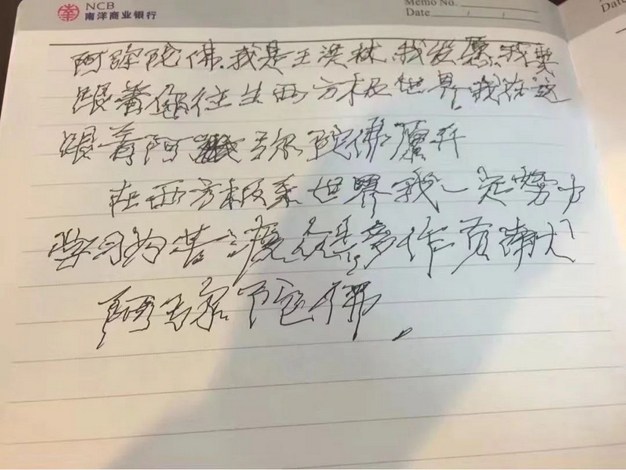 NCB
南洋商业银行
Memo No.
Date / /
阿弥陀佛.我是王洪林.我发愿.我要
跟着您往生西方极世界,我
跟着阿弥陀佛
在西方极乐世界我一定努力
学习为苦难众生多作贡献
阿弥陀佛.